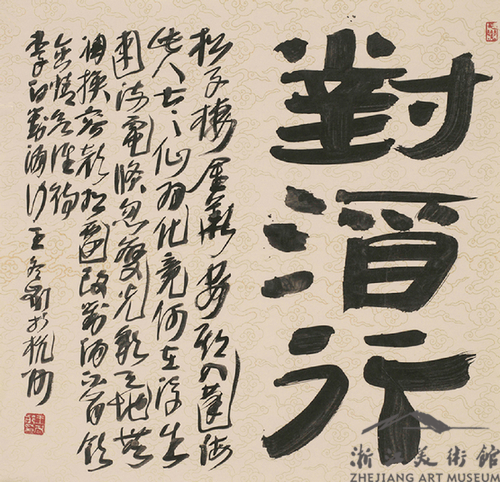 對酒行
松子棲金華安期入蓬海
此人古之仙羽化竟何在浮生
速流電倏忽變光彩天地無
凋換容顏有遷改對酒不肯飲
含情欲誰待
李白對酒行王冬齡於杭州
浙江美術館
ZHEJIANG ART MUSEUM